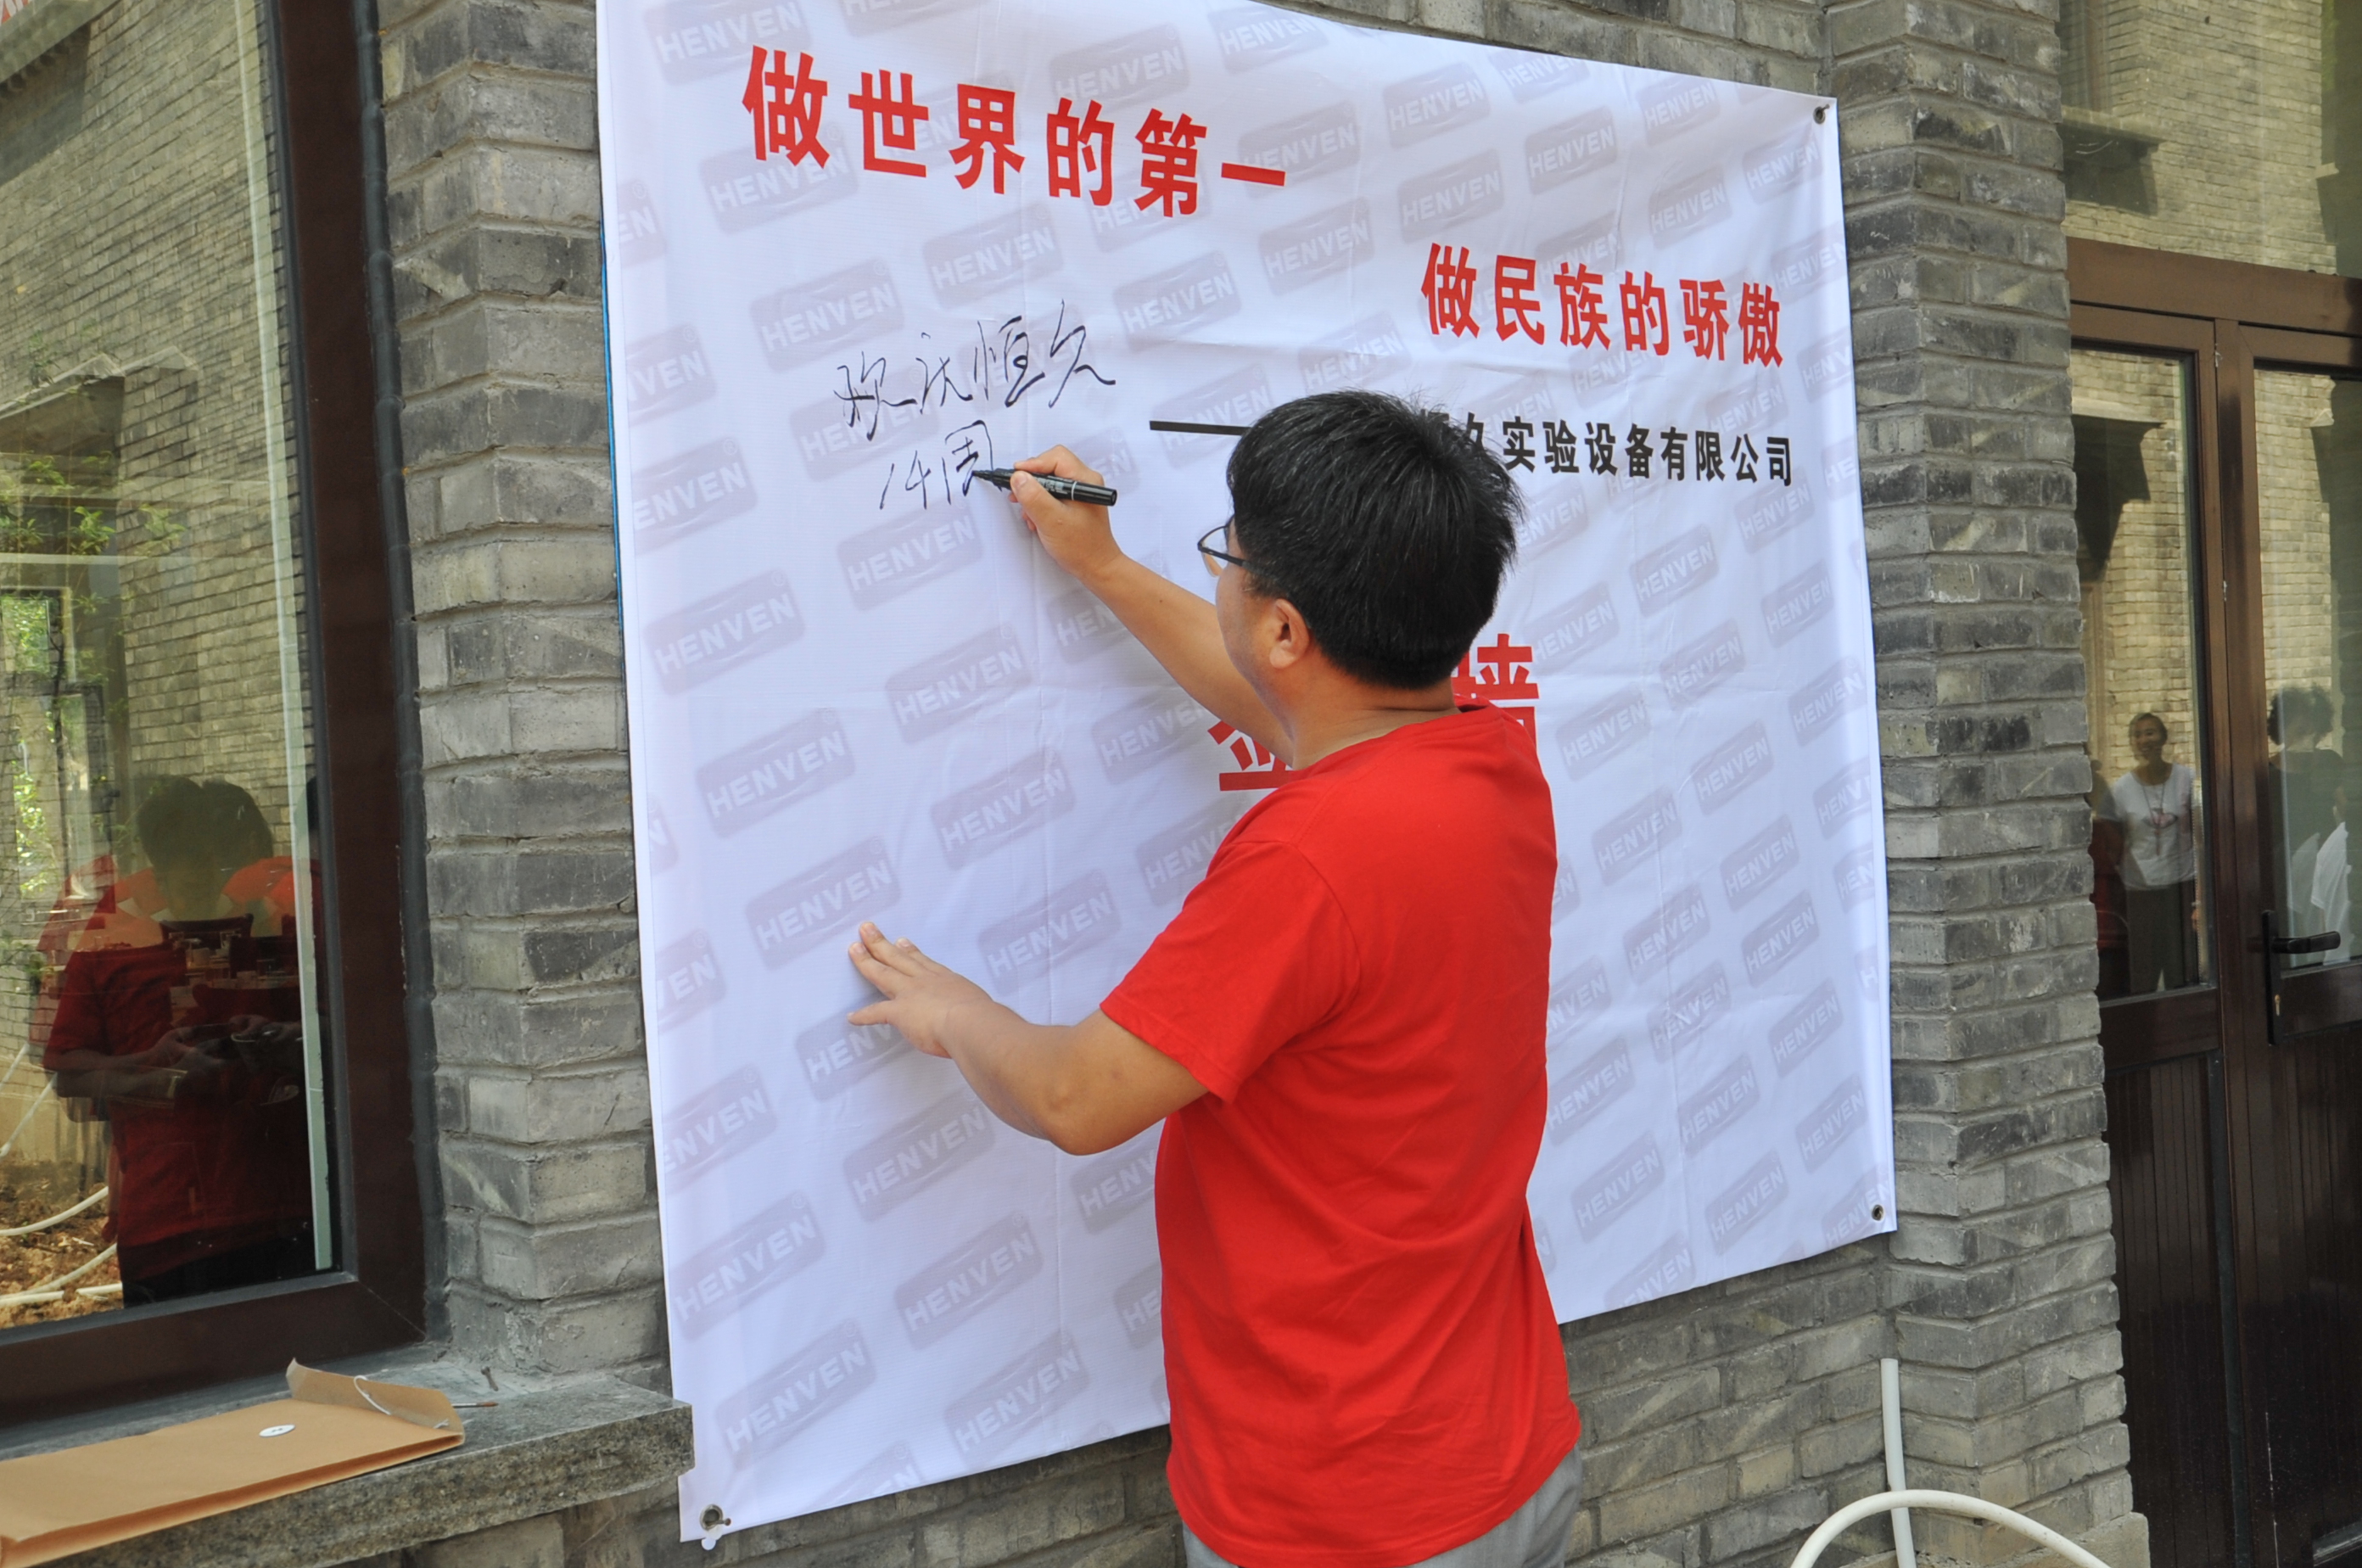 做世界的第一
做民族的骄傲
久实验设备有限公司
欢庆恒久
14周
墙
HENVEN